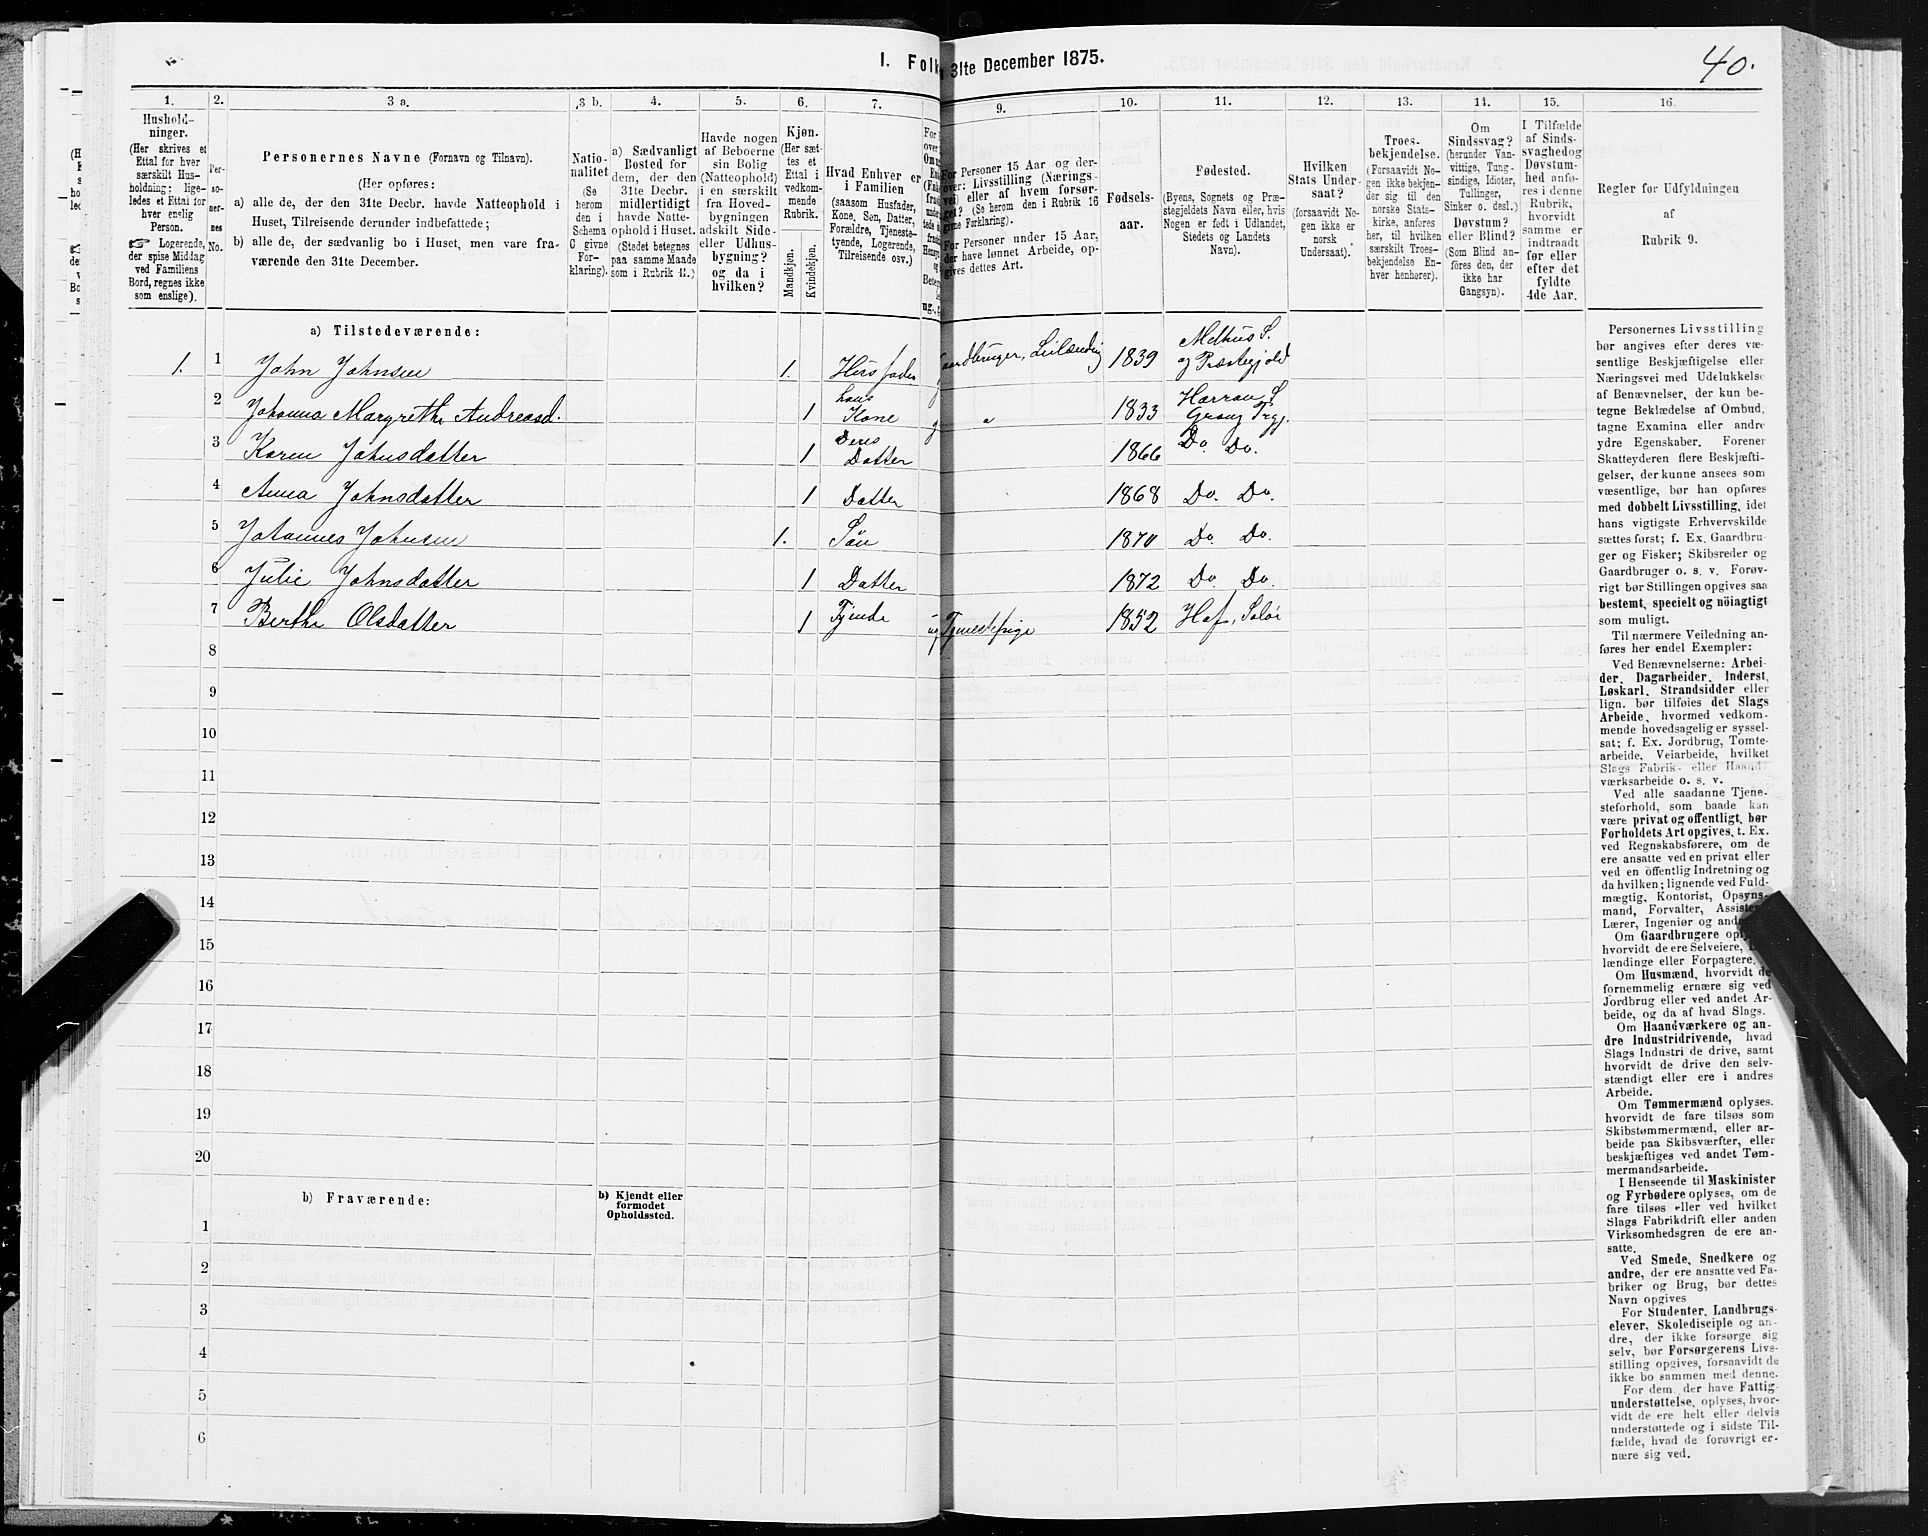 1. Folk
31te December 1875.
40.
1.
Husholdninger.
(Her skrives et
Ettal for hver
særskilt Husholdning;
ligeledes et Ettal for
hver enslig
Person.
☞ Logerende,
der spise Middag
ved Familiens
Bord, regnes ikke
som enslige).
2.
Personernes
No.
3 a.
Personernes Navne (Fornavn og Tilnavn).
(Her opføres:
a) alle de, der den 31te Decbr. havde Natteophold i
Huset, Tilreisende derunder indbefattede;
b) alle de, der sædvanlig bo i Huset, men vare fraværende
den 31te December.
3 b.
Nationalitet
(Se
herom
den i
Schema
C givne
Forklaring).
4.
a) Sædvanligt
Bosted for
dem, der den
31te Decbr.
midlertidigt
havde Natteophold
i Huset.
(Stedet betegnes
paa samme Maade
som i Rubrik 11.)
5.
Havde nogen
af Beboerne
sin Bolig
(Natteophold)
i en særskilt
fra Hovedbygningen
adskilt Side-
eller Udhusbygning?
og da i
hvilken?
6.
Kjøn.
(Her sættes
et
Ettal i
vedkommende
Rubrik.
Mandkjøn.
Kvindekjøn.
7.
Hvad Enhver er
i Familien
(saasom Husfader,
Kone, Søn, Datter,
Forældre, Tjenestetyende,
Logerende,
Tilreisende osv.)
9.
For Personer 15 Aar og derover:
Livsstilling (Næringsvei)
eller af hvem forsørget?
(Se herom den i Rubrik 16
givne Forklaring.)
For Personer under 15 Aar,
der have lønnet Arbeide, opgives
dettes Art.
10.
Fødselsaar.
11.
Fødested.
(Byens, Sognets og Præstegjeldets
Navn eller, hvis
Nogen er født i Udlandet,
Stedets og Landets
Navn).
12.
Hvilken
Stats Undersaat?
(forsaavidt Nogen
ikke er
norsk
Undersaat).
13.
Troesbekjendelse.
(Forsaavidt Nogen
ikke bekjender
sig til den
norske Statskirke,
anføres
her, til hvilken
særskilt Troesbekjendelse
Enhver
henhører).
14.
Om
Sindssvag?
(herunder Vanvittige,
Tungsindige,
Idioter,
Tullinger,
Sinker o. desl.)
Døvstum?
eller Blind?
(Som Blind anføres
den, der
ikke har
Gangsyn).
15.
I Tilfælde
af Sindssvaghed
og
Døvstumhed
anføres
i denne
Rubrik,
hvorvidt
samme er
indtraadt
før eller
efter det
fyldte
4de Aar.
16.
Regler for Udfyldningen
af
Rubrik 9.
a) Tilstedeværende:
1. 1 John Johnsen 1. Husfader Gaardbruger, Leilænding 1839 Melhus S. og Præstegjeld
2 Johanna Margrethe Andreasd. 1 hans Kone g " 1833 Harran S Grong Prgj.
3 Karen Johnsdatter 1 Deres Datter 1866 Do. Do.
4 Anna Johnsdatter 1 Datter 1868 Do. Do.
5 Johannes Johnsen 1. Søn 1870 Do. Do.
6 Julie Johnsdatter 1 Datter 1872 Do. Do.
7 Berthe Olsdatter 1 Tjende ug Tjenestepige 1852 Hof, Solør
8
9
10
11
12
13
14
15
16
17
18
19
20
b) Fraværende:
b) Kjendt eller
formodet
Opholdssted.
1
2
3
4
5
6
Personernes Livsstilling
bør angives efter deres væsentlige
Beskjæftigelse eller
Næringsvei med Udelukkelse
af Benævnelser, der kun betegne
Beklædelse af Ombud,
tagne Examina eller andre
ydre Egenskaber. Forener
Skatteyderen flere Beskjæftigelser,
der kunne ansees som
væsentlige, bør han opføres
med dobbelt Livsstilling, idet
hans vigtigste Erhvervskilde
sættes først; f. Ex. Gaardbruger
og Fisker; Skibsreder og
Gaardbruger o. s. v. Forøvrigt
bør Stillingen opgives saa
bestemt, specielt og nöiagtigt
som muligt.
Til nærmere Veiledning anføres
her endel Exempler:
Ved Benævnelserne: Arbeider,
Dagarbeider, Inderst,
Løskarl, Strandsidder eller
lign. bør tilføies det Slags
Arbeide, hvormed vedkommende
hovedsagelig er sysselsat;
f. Ex. Jordbrug, Tomtearbeide,
Veiarbeide, hvilket
Slags Fabrik- eller Haandværksarbeide
o. s. v.
Ved alle saadanne Tjenesteforhold,
som baade kan
være privat og offentligt, bør
Forholdets Art opgives, t. Ex.
ved Regnskabsførere, om de
ere ansatte ved en privat eller
ved en offentlig Indretning og
da hvilken; lignende ved Fuldmægtig,
Kontorist, Opsynsmand,
Forvalter,
Lærer, Ingeniør og
Om Gaardbrugere
hvorvidt de ere Selveiere,
lændinge eller Forpagtere.
Om Husmænd, hvorvidt de
fornemmelig ernære sig ved
Jordbrug eller ved andet Arbeide,
og da af hvad Slags.
Om Haandværkere og andre
Industridrivende, hvad
Slags Industri de drive, samt
hvorvidt de drive den selvstændigt
eller ere i andres
Arbeide.
Om Tømmermænd oplyses,
hvorvidt de fare tilsøs som
Skibstømmermænd, eller arbeide
paa Skibsværfter, eller
beskjæftiges ved andet Tømmermandsarbeide.
I Henseende til Maskinister
og Fyrbødere oplyses, om de
fare tilsøs eller ved hvilket
Slags Fabrikdrift eller anden
Virksomhedsgren de ere ansatte.
Ved Smede, Snedkere og
andre, der ere ansatte ved Fabriker
og Brug, bør dettes
Navn opgives
For Studenter, Landbrugselever,
Skoledisciple og andre,
der ikke forsørge sig
selv, bør Forsørgerens Livsstilling
opgives, forsaavidt de
ikke bo sammen med denne.
For dem, der have Fattigunderstøttelse,
oplyses, hvorvidt
de ere helt eller delvis
understøttede og i sidste Tilfælde,
hvad de forøvrigt ernære
sig ved.